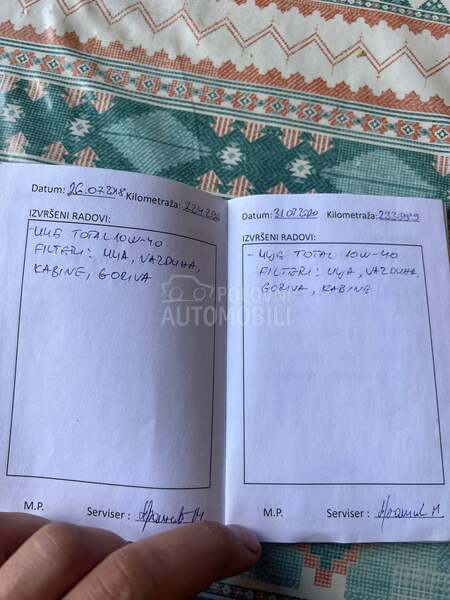 Datum: 26.07.2018 Kilometraža:
IZVRŠENI RADOVI:
- ULJE TOTAL 10W-40
FILTERI: ULJA, VAZDUHA,
KABINE, GORIVA
M.P. Serviser:
Datum: 31.07.2020 Kilometraža:
IZVRŠENI RADOVI:
- ULJE TOTAL 10W-40
FILTERI: ULJA, VAZDUHA
GORIVA, KABINE
M.P. Serviser:
POLOVNI
AUTOMOBILI